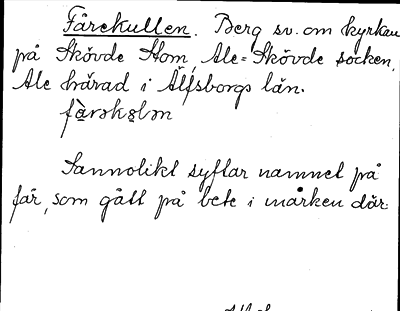 Fårekullen. Berg sv. om kyrkan
på Skövde Stom, Ale-Skövde socken,
Ale härad i Älfsborgs län.
Sannolikt syftar namnet på
får, som gått på bete i marken där.